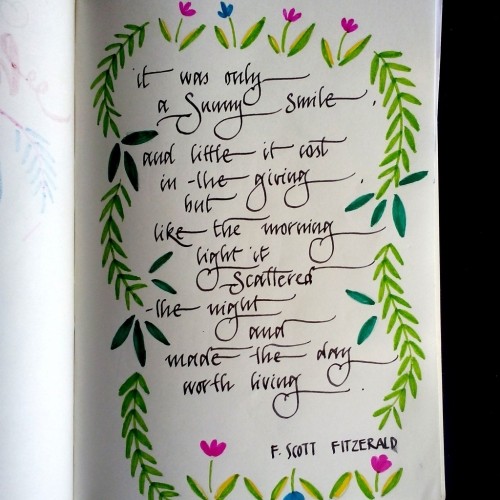 it was only
a Sunny smile,
and little it cost
in the giving.
but
like the morning
light it
scattered
the night
and
made the day
worth living.
F. SCOTT FITZERALD